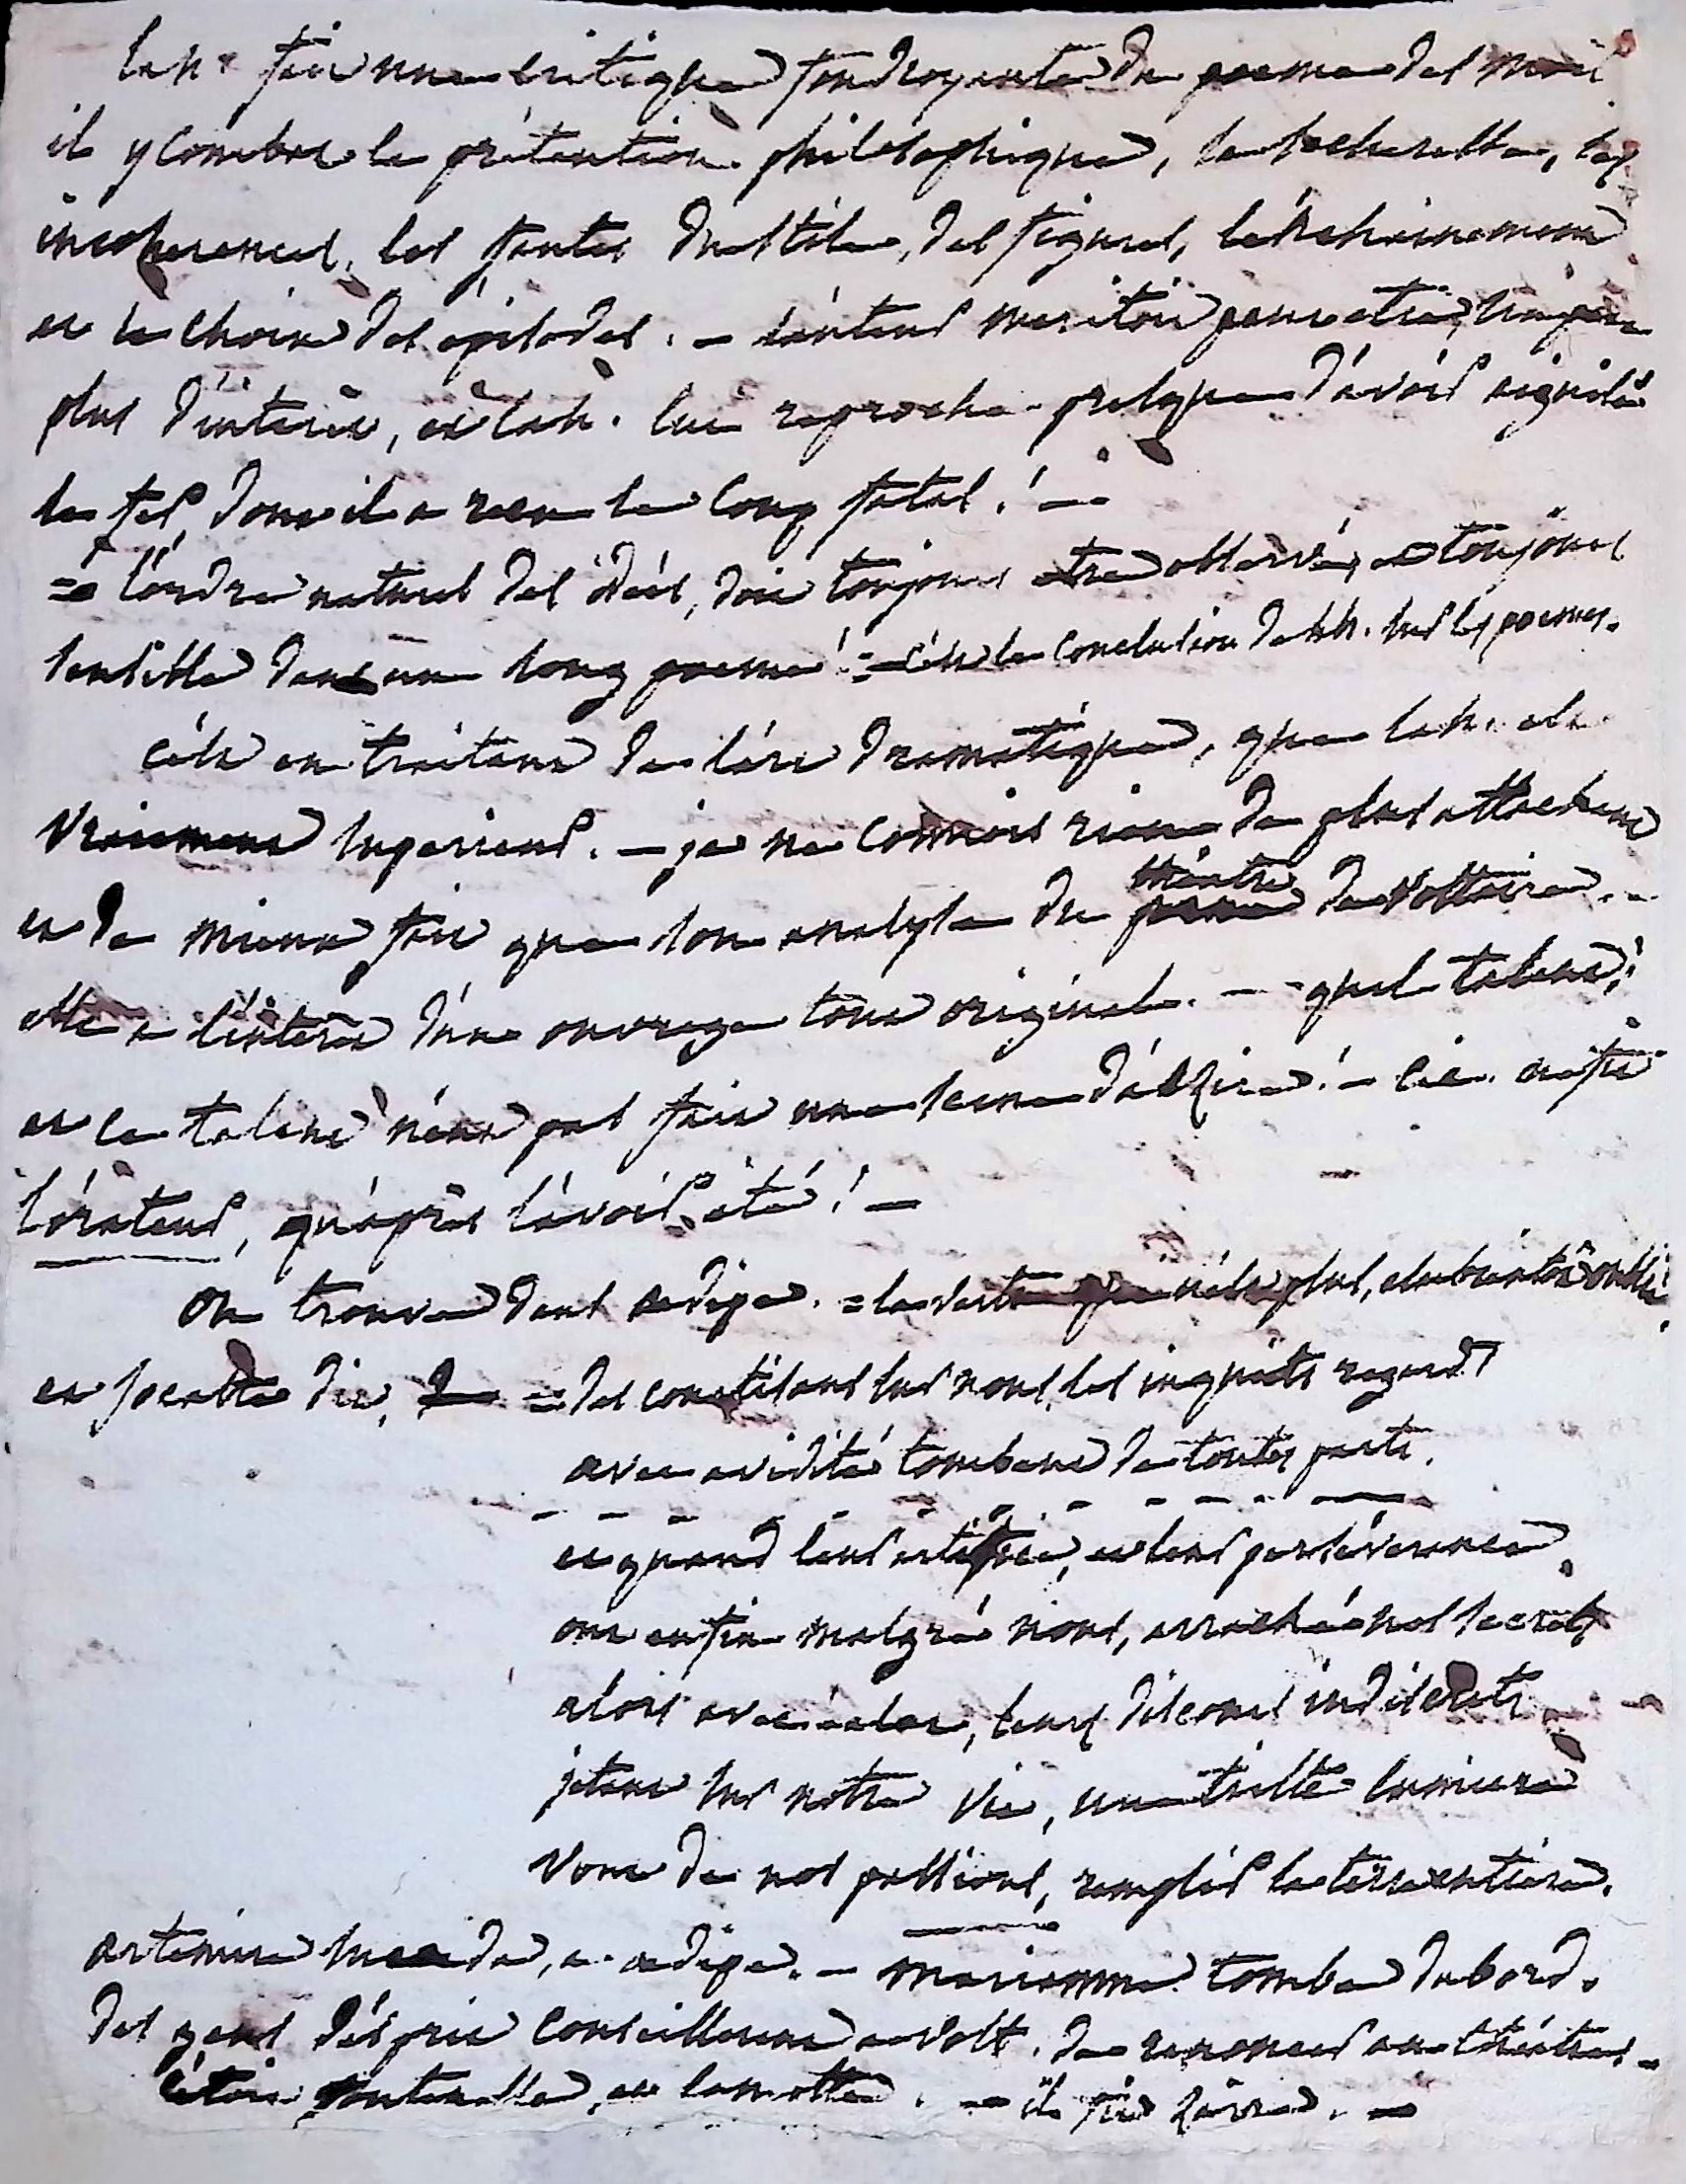 Lah. fait une critique foudroyante du poeme des mois
il y combat la prétention philosophique, la secheresse, les
incoherences, les fautes du stile, des figures, l'enchainement
et le choix des épisodes. – l'auteur meritoit peut etre, un peu
plus d'interêt, et Lah. lui reproche presque d'avoir aiguisé
le fer, dont il a recu le coup fatal ! –
= l'ordre naturel des idées, doit toujours etre observé, et toujours
sensible dans un long poeme ! = c'est la conclusion de Lah. sur les poemes.
c'est en traitant de l'art dramatique, que Lah. est
vraiment superieur. – je ne connois rien de plus attachant
et de mieux fait que son analyse du théatre de Voltaire. –
elle a l'interet d'un ouvrage tout original. – quel talent !
et ce talent n'eut pas fait une scene d'alzire ! – Cic. ne fit
l'orateur, qu'après l'avoir été ! –
On trouve dans oedipe. = la vertu qui n'est plus, est bientôt oubliée.
et Jocaste dit, = des courtisans sur nous, les inquiets regards
avec avidité tombent de toutes parts.
et quand leur artifice, et leur perséverance
ont enfin malgré nous, arraché nos secrets
alors avec éclat, leurs discours indiscrets
jetant sur notre vie, une triste lumiere
vont de nos passions, remplir la terre entiere.
artemire succede, a oedipe. – mariamne tomba dabord.
des gens d'esprit conseillerent a Volt. de renoncer au théatre. –
c'étoit fontenelle, et lamotte. – il fit Zaïre. –